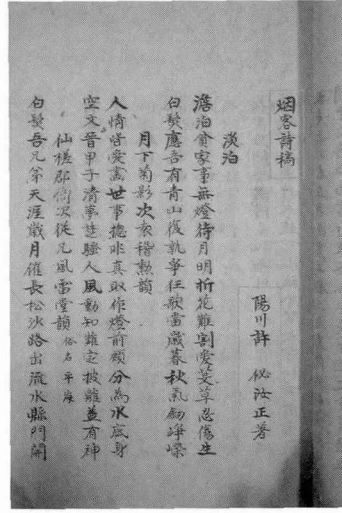 烟客詩稿
陽川 許 佖 汝正 著
淡泊
澹泊貧家事無燈待月明折花難割愛芟草忍傷生
白髮應吾有青山復孰爭狂歌當歲暮秋氣劒崢嶸
月下菊影次袁稽勳韻
人情皆愛畵世事摠非真取作燈前類分爲水底身
空文晉甲子清事楚騷人風動知難定披離益有神
仙槎郡衙次從兄風雷堂韻 俗名平海
白髮吾兄弟天涯歲月催長松沙路出流水縣門開